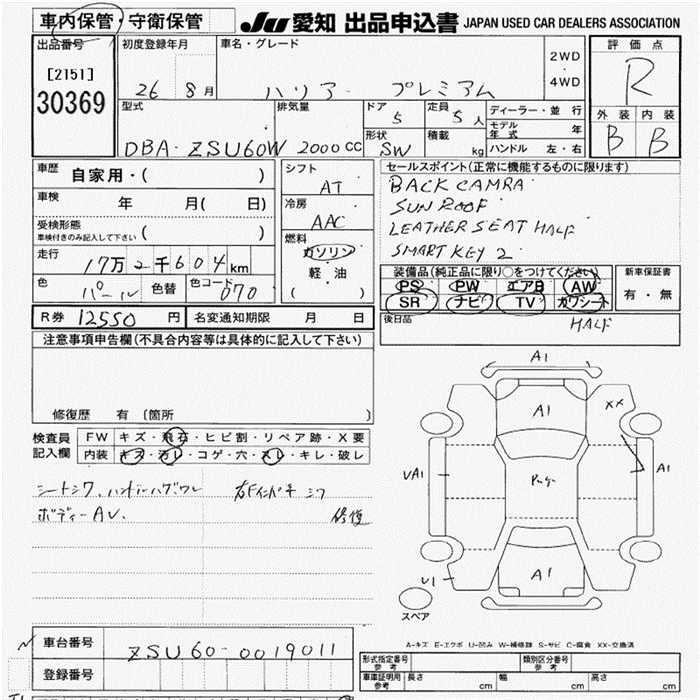 車内保管・守衛保管
JU 愛知 出品申込書 JAPAN USED CAR DEALERS ASSOCIATION
出品番号
[2151]
30369
初度登録年月
26 8月
車名・グレード
ハリアー プレミアム
2WD
・
4WD
評価点
R
外装 内装
B B
型式
DBA-ZSU60W
排気量
2000cc
ドア
5
定員
5人
形状
SW
積載
kg
ディーラー・並行
モデル年式 年
ハンドル 左・右
車歴
自家用・( )
車検
年 月( 日)
受検形態
車検付きのみ記入して下さい ( )
走行
17万2千604km
色
パール
色替
色コード
070
シフト
AT
冷房
AAC
燃料
ガソリン
軽・油
( )
セールスポイント(正常に機能するものに限ります)
BACK CAMRA
SUN ROOF
LEATHER SEAT HALF
SMART KEY 2
装備品(純正品に限り○をつけてください)
PS PW エアB AW
SR ナビ TV カワシート
新車保証書
有・無
R券 12550円
名変通知期限 月 日
後日品
HALF
注意事項申告欄(不具合内容等は具体的に記入して下さい)
修復歴 有〔箇所 〕
検査員
記入欄
FW キズ・飛石・ヒビ割・リペア跡・X要
内装 キズ・汚レ・コゲ・穴・スレ・キレ・破レ
シートシワ、ハンドルハゲ、ワレ
ボディーAU.
修復
A1
A1
XX
UA1
A1
A1
U1
スペア
A-キズ E-エクボ U-凹み W-補修跡 S-サビ C-腐食 XX-交換済
車台番号
ZSU60-0019011
登録番号
形式指定番号
参考
類別区分番号
参考
車庫証明用
参考
長さ cm
幅 cm
高さ cm